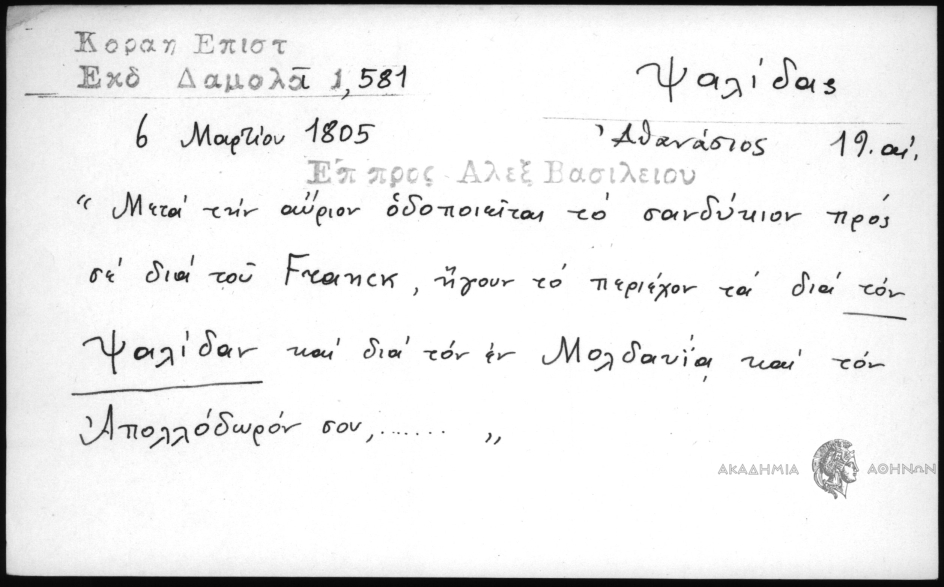 Κοραη Επιστ
Εκδ Δαμολᾶ 1,581
Ψαλίδας
6 Μαρτίου 1805
Ἀθανάσιος 19. αἰ.
Επ προς Αλεξ Βασιλειου
“ Μετά τήν αὔριον ὁδοποιεῖται τό σανδύκιον πρός
σέ διά τοῦ Franck, ἤγουν τό περιέχον τά διά τόν
Ψαλίδαν καί διά τόν ἐν Μολδαυίᾳ καί τόν
Ἀπολλόδωρόν σου,....... ”
ΑΚΑΔΗΜΙΑ ΑΘΗΝΩΝ